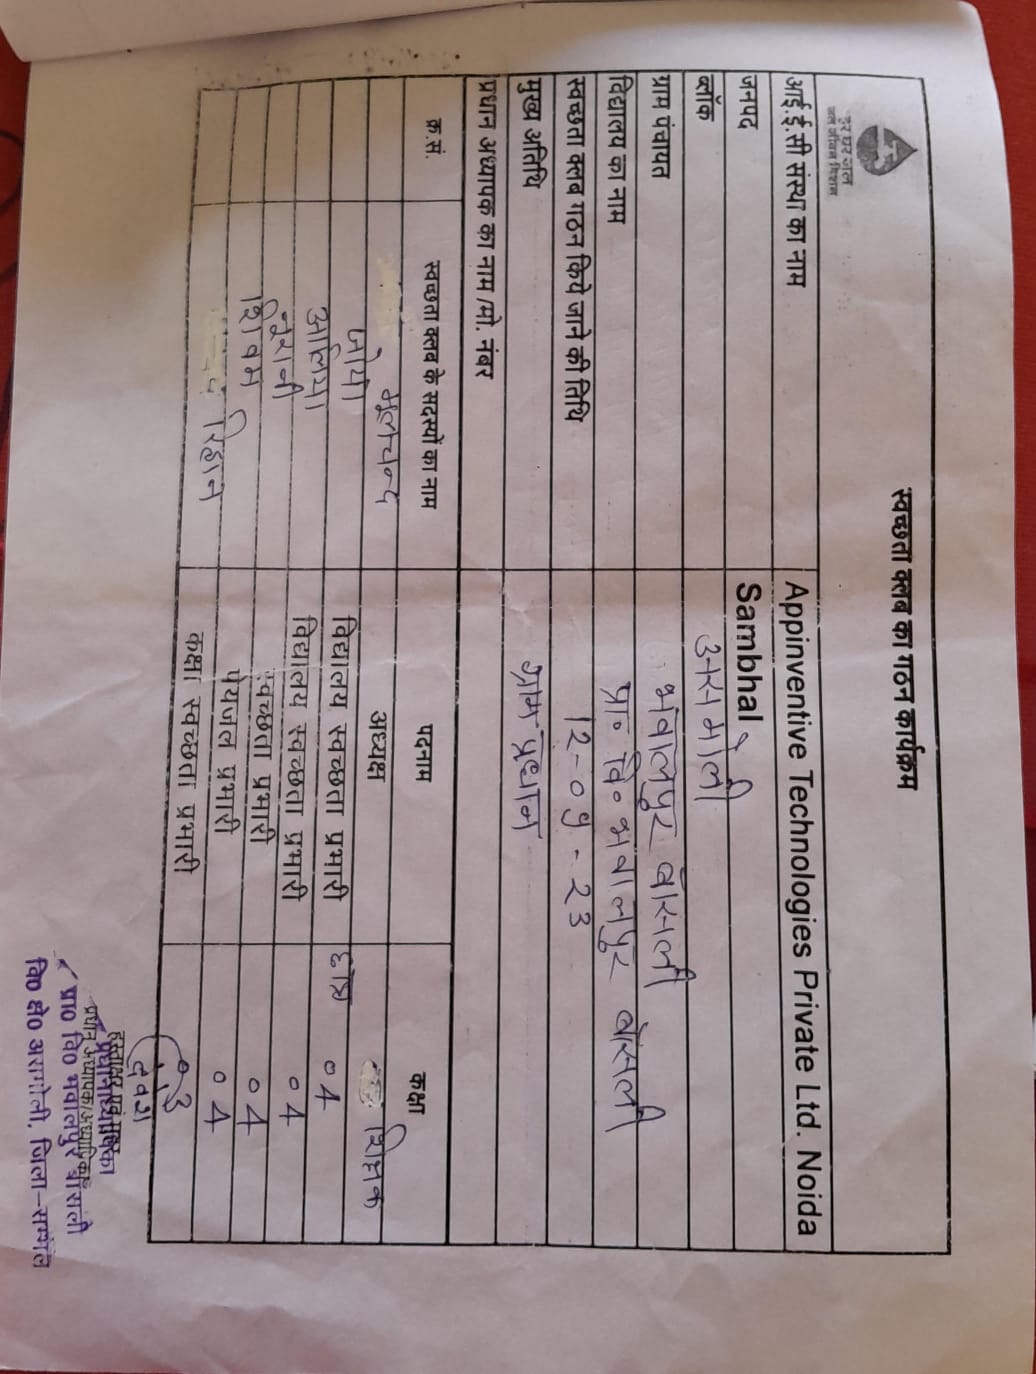 हर घर जल
जल जीवन मिशन
स्वच्छता क्लब का गठन कार्यक्रम
आई.ई.सी संस्था का नाम Appinventive Technologies Private Ltd. Noida
जनपद Sambhal
ब्लॉक असमोली
ग्राम पंचायत भवालपुर बांसली
विद्यालय का नाम प्रा० वि० भवालपुर बांसली
स्वच्छता क्लब गठन किये जाने की तिथि 12-09-23
मुख्य अतिथि ग्राम प्रधान
प्रधान अध्यापक का नाम /मो. नंबर
क्र.सं. स्वच्छता क्लब के सदस्यों का नाम पदनाम कक्षा
मूलचन्द अध्यक्ष शिक्षक
जोया विद्यालय स्वच्छता प्रभारी छात्र 04
आलिया विद्यालय स्वच्छता प्रभारी 04
शिवम पेयजल प्रभारी 04
रिहान कक्षा स्वच्छता प्रभारी 03
प्रधानाध्यापिका
प्रा० वि० भवालपुर बांसली
वि० क्षे० असमोली, जिला-सम्भल